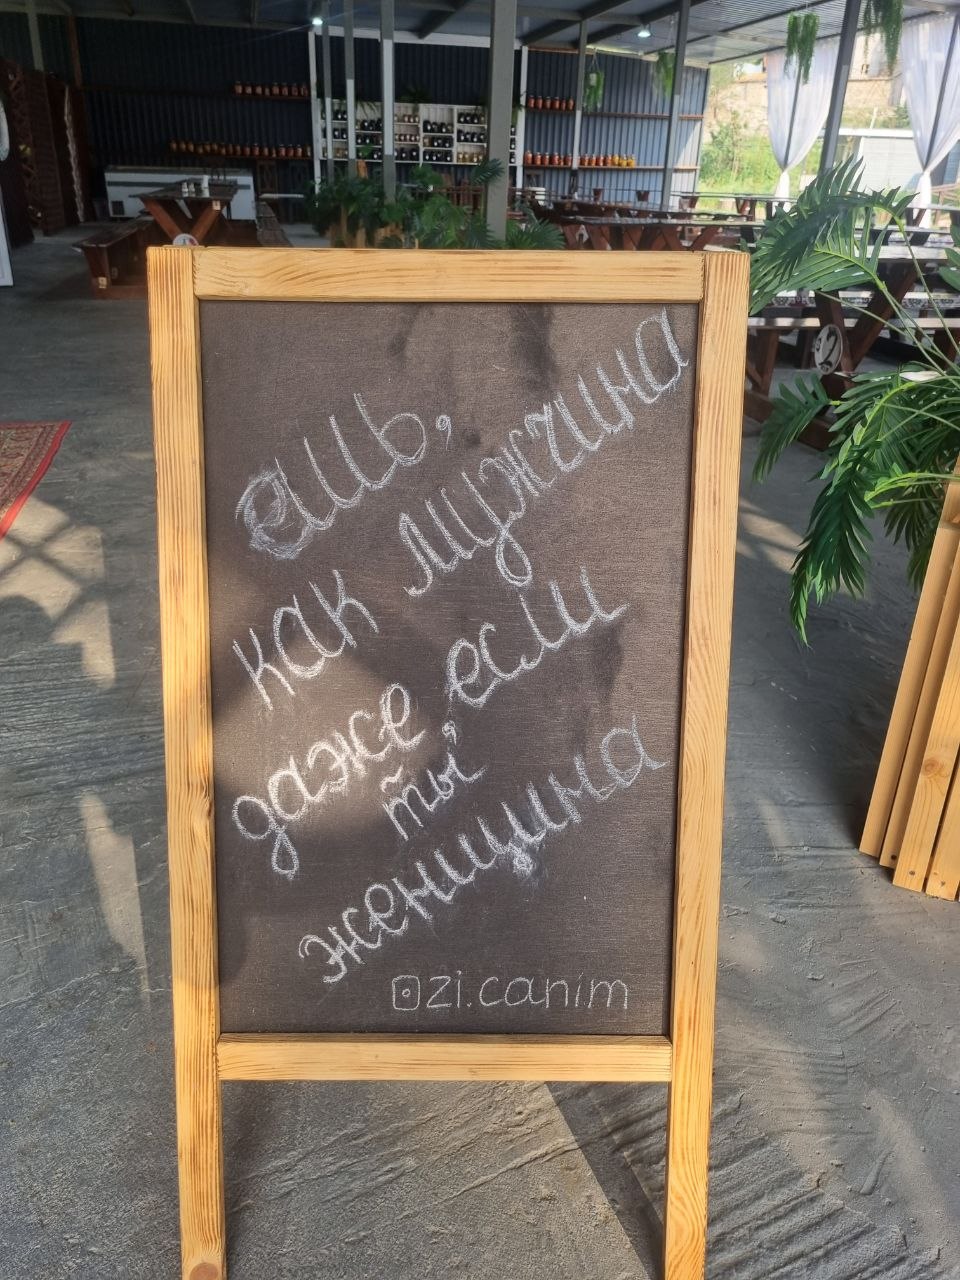 ешь,
как мужчина
даже, если
ты
женщина
zi.canim